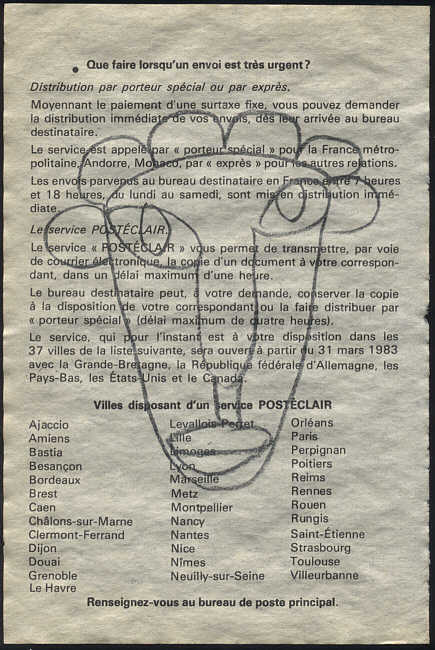 Que faire lorsqu'un envoi est très urgent ?
Distribution par porteur spécial ou par exprès.
Moyennant le paiement d'une surtaxe fixe, vous pouvez demander
la distribution immédiate de vos envois, dès leur arrivée au bureau
destinataire.
Le service est appelé par « porteur spécial » pour la France métro-
politaine, Andorre, Monaco, par « exprès » pour les autres relations.
Les envois parvenus au bureau destinataire en France entre 7 heures
et 18 heures, du lundi au samedi, sont mis en distribution immé-
diate.
Le service POSTÉCLAIR.
Le service « POSTÉCLAIR » vous permet de transmettre, par voie
de courrier électronique, la copie d'un document à votre correspon-
dant, dans un délai maximum d'une heure.
Le bureau destinataire peut, à votre demande, conserver la copie
à la disposition de votre correspondant ou la faire distribuer par
« porteur spécial » (délai maximum de quatre heures).
Le service, qui pour l'instant est à votre disposition dans les
37 villes de la liste suivante, sera ouvert à partir du 31 mars 1983
avec la Grande-Bretagne, la République fédérale d'Allemagne, les
Pays-Bas, les États-Unis et le Canada.
Villes disposant d'un service POSTÉCLAIR
Ajaccio
Amiens
Bastia
Besançon
Bordeaux
Brest
Caen
Châlons-sur-Marne
Clermont-Ferrand
Dijon
Douai
Grenoble
Le Havre
Levallois-Perret
Lille
Limoges
Lyon
Marseille
Metz
Montpellier
Nancy
Nantes
Nice
Nîmes
Neuilly-sur-Seine
Orléans
Paris
Perpignan
Poitiers
Reims
Rennes
Rouen
Rungis
Saint-Étienne
Strasbourg
Toulouse
Villeurbanne
Renseignez-vous au bureau de poste principal.